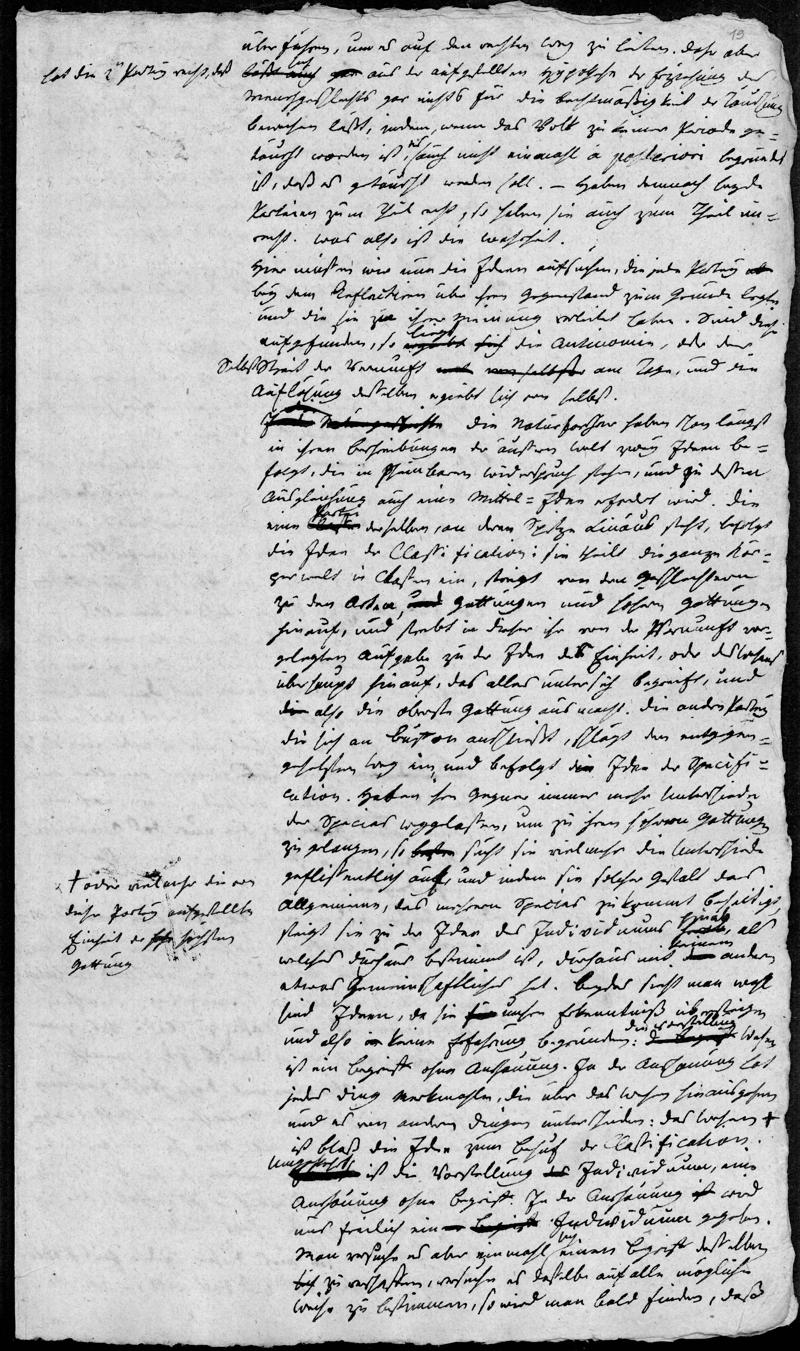 19
über führen, um es auf den rechten Weg zu leiten. Daß aber
hat die 2te Parthey recht, daß
sich aus der aufgestellten Hypothese der Erziehung des
Menschgeschlechts gar nichts für die Rechtmäßigkeit der Täuschung
beweisen läßt, indem, wenn das Volk zu keiner Periode ge-
täuscht worden ist, es auch nicht einmahl a posteriori begründet
ist, daß es getäuscht werden soll. – Haben demnach beyde
Partheien zum Theil recht, so haben sie auch zum Theil un-
recht. Was also ist die Wahrheit.
Hier müssen wir nun die Ideen aufsuchen, die jede Parthey
bey dem Reflectiren über ihren Gegenstand zum Grunde legte
und die sie zu ihrer Meinung verleitet haben. Sind diese
aufgefunden, so liegt die Antinomie, oder der
Selbst Streit der Vernunft am Tage, und die
Auflösung desselben ergiebt sich von selbst.
Die Naturforscher haben schon längst
in ihren Beschreibungen der äussern Welt zwey Ideen be-
folgt, die in scheinbarem Widerspruch stehen, und zu dessen
Ausgleichung auch eine Mittel-Idee erfodert wird. Die
eine Parthey derselben, an deren Spitze Linäus steht, befolgt
die Idee der Classification: sie theilt die ganze Kör-
perwelt in Classen ein, steigt von den Geschlechtern
zu den Arten, Gattungen und höhern Gattungen
hinauf, und strebt in dieser ihr von der Vernunft vor-
gelegten Aufgabe zu der Idee der Einheit, oder des Wesens
überhaupt hinauf, das alles unter sich begreift, und
also die oberste Gattung ausmacht. Die andere Parthey
die sich an Büffon anschließt, schlägt den entgegen-
gesetzten Weg ein, und befolgt die Idee der Specifi-
cation. Haben ihre Gegner immer mehr Unterschiede
der Species weggelassen, um zu ihren höhern Gattungen
zu gelangen, so sucht sie vielmehr die Unterschiede
geflissentlich auf, und indem sie solcher Gestalt das
Allgemeine, das mehrern Species zukommt beseitigt,
steigt sie zu der Idee des Individuums hinab, als
welches durchaus bestimmt ist, durchaus mit keinem andern
etwas Gemeinschaftliches hat. Beydes sieht man wohl
sind Ideen, da sie unsre Erkenntniß übersteigen
und also keine Erfahrung begründen: die Vorstellung Wesen
ist ein Begriff ohne Anschauung. In der Anschauung hat
jedes Ding Merkmahle, die über das Wesen hinausgehen
und es von andern Dingen unterscheiden: das Wesen +
+ oder vielmehr die von
dieser Parthey aufgestellte
Einheit der höchsten
Gattung
ist bloß die Idee zum Behuf der Classification.
Umgekehrt ist die Vorstellung Individuum, eine
Anschauung ohne Begriff. In der Anschauung wird
uns freilich ein Individuum gegeben.
Man versuche es aber einmahl sich einen Begriff desselben
zu verschaffen, versuche es dasselbe auf alle mögliche
Weise zu bestimmen, so wird man bald finden, daß